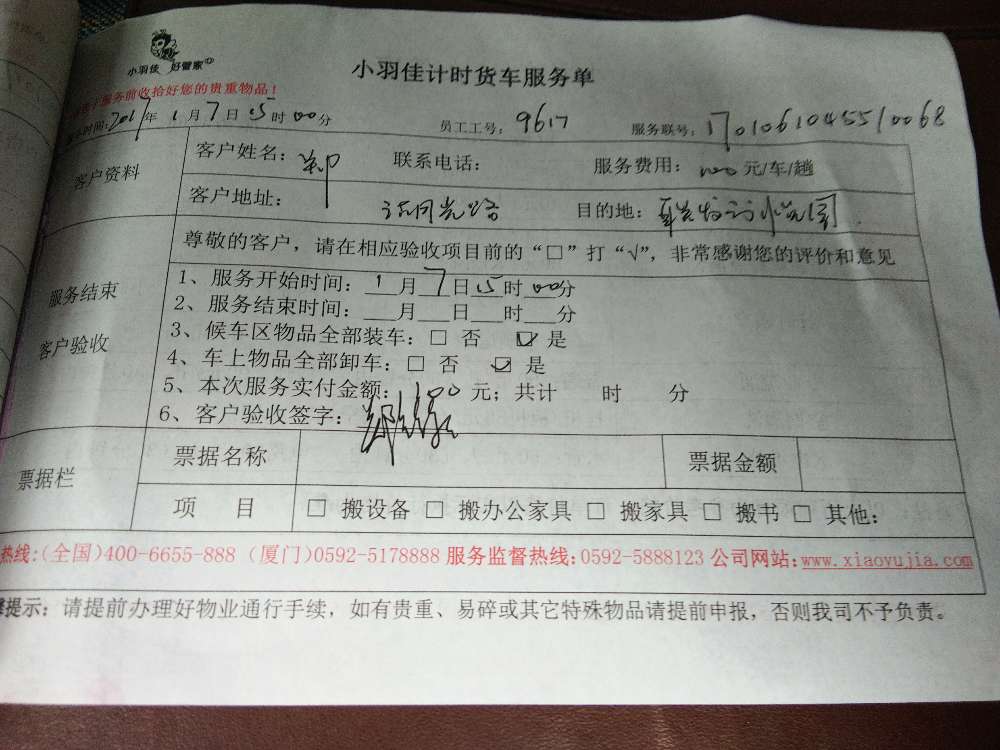 小羽佳 好管家
小羽佳计时货车服务单
服务前收拾好您的贵重物品！
时间：2017年1月7日15时00分 员工工号：9617 服务联号：1701061045510068
客户资料
客户姓名：郑 联系电话： 服务费用：100元/车/趟
客户地址： 目的地：
服务结束
客户验收
尊敬的客户，请在相应验收项目前的“□”打“√”，非常感谢您的评价和意见
1、服务开始时间：1月7日15时00分
2、服务结束时间：___月___日___时___分
3、候车区物品全部装车：□ 否 ☑ 是
4、车上物品全部卸车：□ 否 ☑ 是
5、本次服务实付金额：100元；共计 时 分
6、客户验收签字：郑
票据栏
票据名称 票据金额
项 目 □ 搬设备 □ 搬办公家具 □ 搬家具 □ 搬书 □ 其他：
热线:(全国)400-6655-888 (厦门)0592-5178888 服务监督热线:0592-5888123 公司网站:www.xiaoyujia.com
提示：请提前办理好物业通行手续，如有贵重、易碎或其它特殊物品请提前申报，否则我司不予负责。